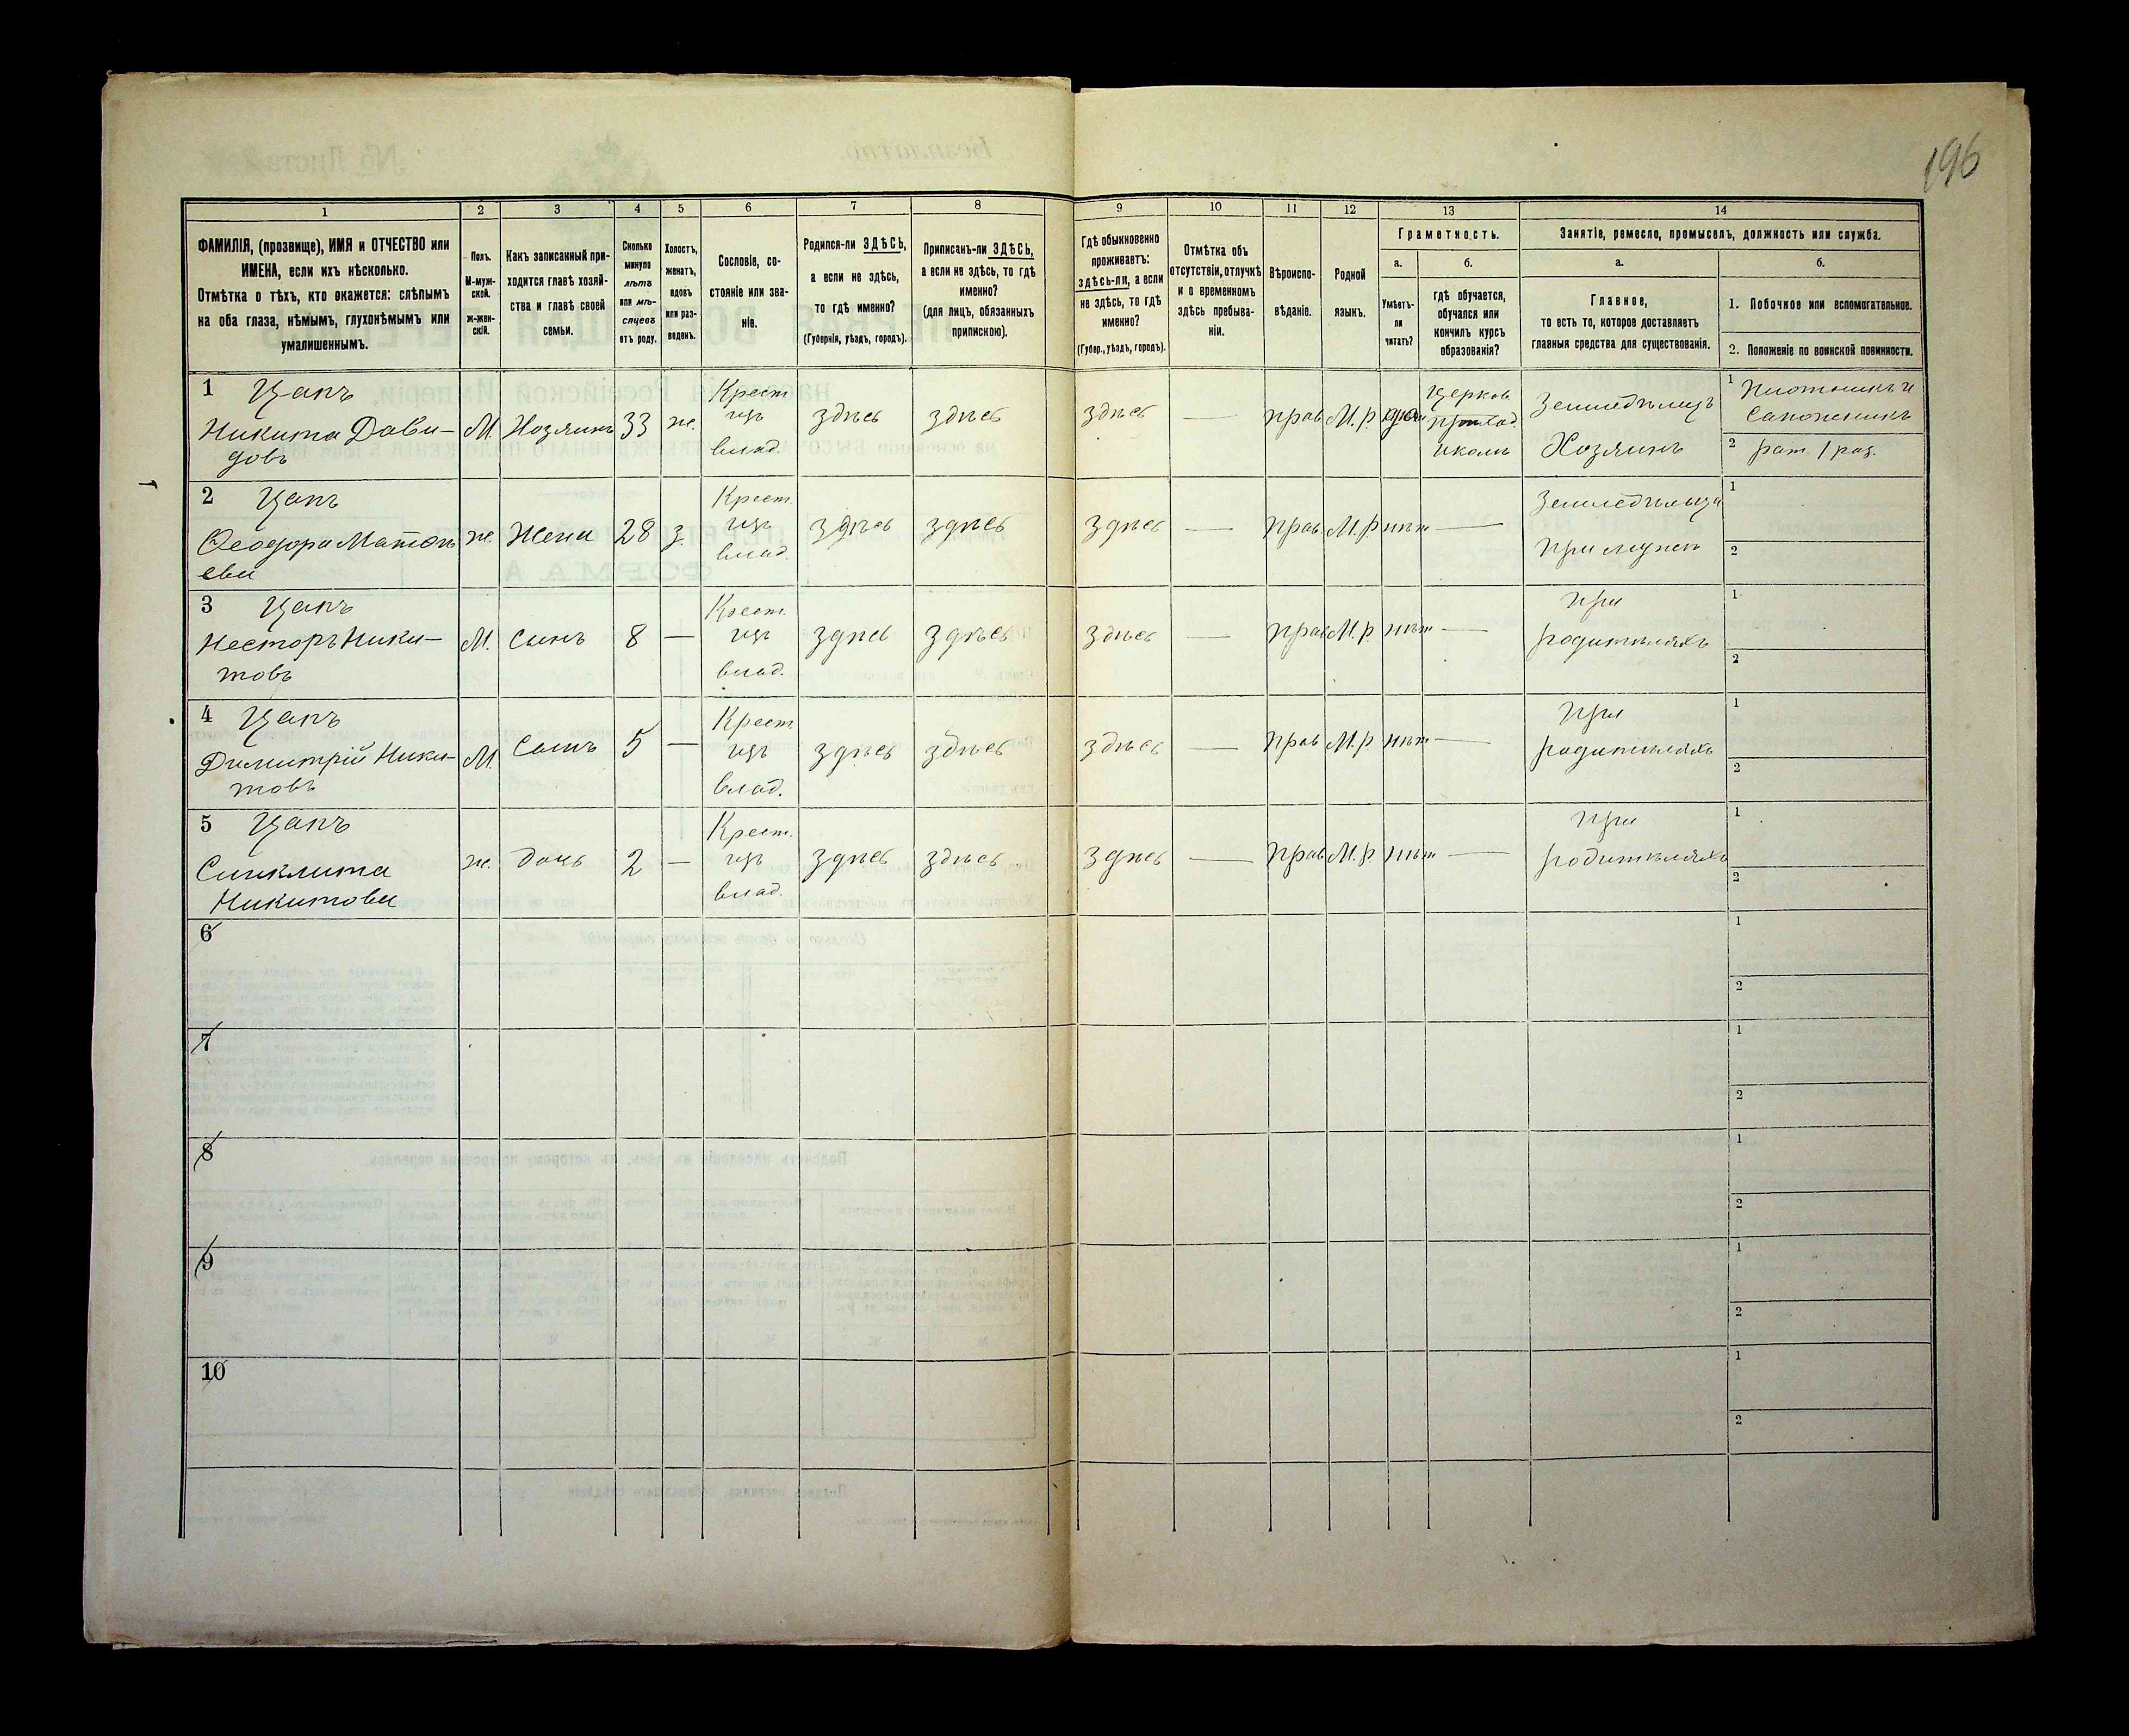 196
1
2
3
4
5
6
7
8
9
10
11
12
13
14
ФАМИЛІЯ, (прозвище), ИМЯ и ОТЧЕСТВО или
ИМЕНА, если ихъ нѣсколько.
Отмѣтка о тѣхъ, кто окажется: слѣпымъ
на оба глаза, нѣмымъ, глухонѣмымъ или
умалишеннымъ.
Полъ.
М-муж-
ской.
ж-жен-
скій.
Какъ записанный при-
ходится главѣ хозяй-
ства и главѣ своей
семьи.
Сколько
минуло
лѣтъ
или мѣ-
сяцевъ
отъ роду.
Холостъ,
женатъ,
вдовъ
или раз-
веденъ.
Сословіе, со-
стояніе или зва-
ніе.
Родился-ли ЗДѢСЬ,
а если не здѣсь,
то гдѣ именно?
(Губернія, уѣздъ, городъ).
Приписанъ-ли ЗДѢСЬ,
а если не здѣсь, то гдѣ
именно?
(для лицъ, обязанныхъ
припискою).
Гдѣ обыкновенно
проживаетъ:
здѣсь-ли, а если
не здѣсь, то гдѣ
именно?
(Губер., уѣздъ, городъ).
Отмѣтка объ
отсутствіи, отлучкѣ
и о временномъ
здѣсь пребыва-
ніи.
Вѣроиспо-
вѣданіе.
Родной
языкъ.
Грамотность.
а.
б.
Умѣетъ-
ли
читать?
гдѣ обучается,
обучался или
кончилъ курсъ
образованія?
Занятіе, ремесло, промыселъ, должность или служба.
а.
б.
Главное,
то есть то, которое доставляетъ
главныя средства для существованія.
1. Побочное или вспомогательное.
2. Положеніе по воинской повинности.
1 Цапъ
Никита Дави-
довъ
М.
Хозяинъ
33
ж.
Крест.
изъ
влад.
здѣсь
здѣсь
здѣсь
—
прав.
М.р.
церков
школѣ
Земледѣлецъ
Хозяинъ
1 Плотникъ и
Сапожникъ
2 рат. 1 раз.
2 Цапъ
Ѳеодора Матвѣ
ева
ж.
Жена
28
з.
Крест.
изъ
влад.
здѣсь
здѣсь
здѣсь
—
прав.
М.р.
нѣт
—
Земледѣлица
при мужѣ
1
2
3 Цапъ
Несторъ Ники-
товъ
М.
сынъ
8
—
Крест.
изъ
влад.
здѣсь
здѣсь
здѣсь
—
прав
М.р.
нѣт
—
при
родителяхъ
1
2
4 Цапъ
Димитрій Ники-
товъ
М.
сынъ
5
—
Крест
изъ
влад.
здѣсь
здѣсь
здѣсь
—
прав
М.р
нѣт
—
при
родителяхъ
1
2
5 Цапъ
Синклита
Никитова
ж.
дочь
2
—
Крест.
изъ
влад.
здѣсь
здѣсь
здѣсь
—
прав
М.р
нѣт
—
при
родителяхъ
1
2
6
1
2
7
1
2
8
1
2
9
1
2
10
1
2